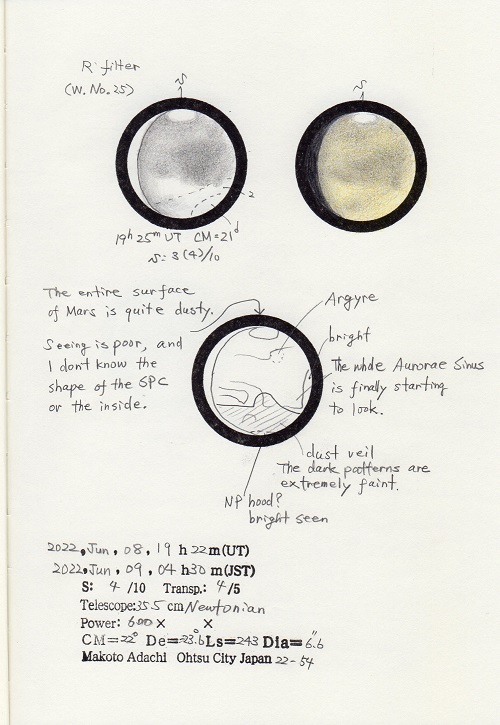 R filter
(W. No. 25)
S
S
2
d
19h 25m UT CM=21°
S: 3(4)/10
The entire surface
of Mars is quite dusty.
Argyre
bright
Seeing is poor, and
I don't know the
shape of the SPC
or the inside.
The whole Aurorae Sinus
is finally starting
to look.
dust veil
The dark patterns are
extremely faint.
NP hood?
bright seen
2022, Jun, 08, 19 h 22 m(UT)
2022, Jun, 09, 04 h 30 m(JST)
S: 4 /10 Transp.: 4/5
Telescope: 355 cm Newtonian
Power: 600 × ×
CM=22° De=-23.6° Ls=243 Dia=6.6"
Makoto Adachi Ohtsu City Japan 22-54